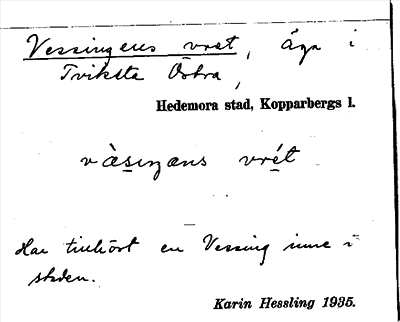 Vessingens vret, äga i
Tviksta Östra,
Hedemora stad, Kopparbergs l.
vàsiŋəns vrét
Har tillhört en Vessing inne i
staden.
Karin Hessling 1935.